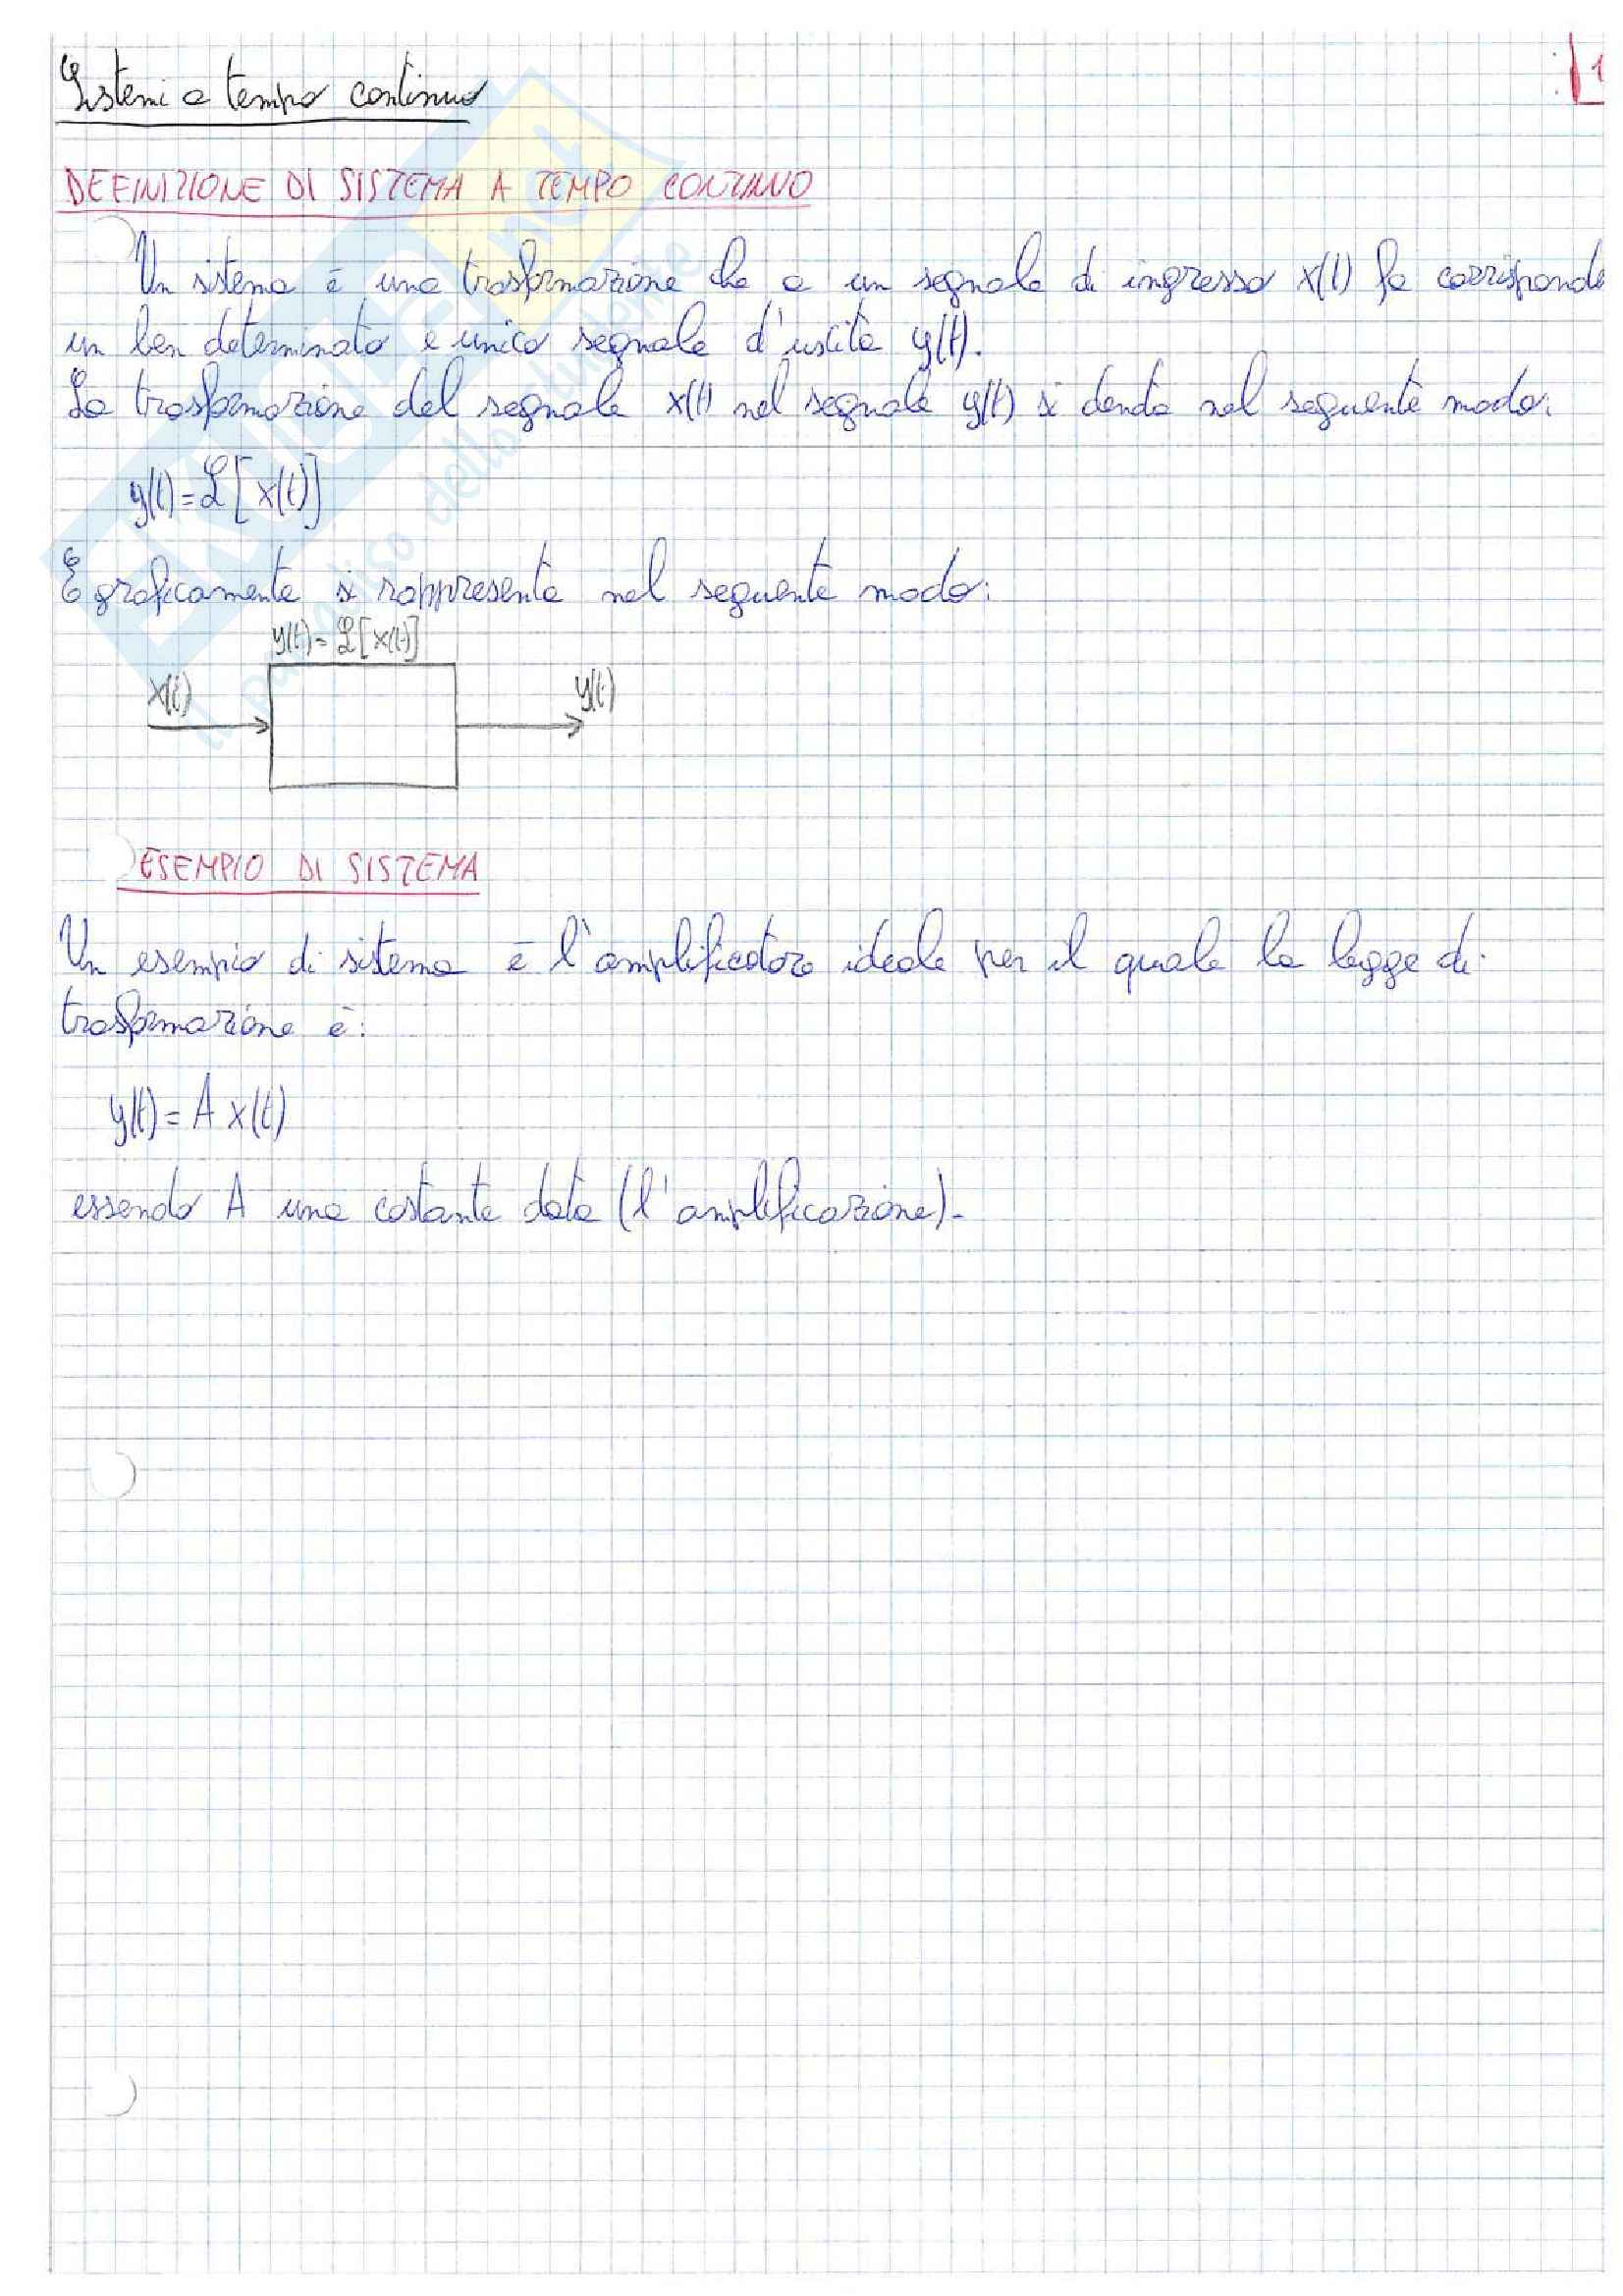 1
Sistemi a tempo continuo
DEFINIZIONE DI SISTEMA A TEMPO CONTINUO
Un sistema è una trasformazione che a un segnale di ingresso x(t) fa corrisponde
un ben determinato e unico segnale d'uscita y(t).
La trasformazione del segnale x(t) nel segnale y(t) si denota nel seguente modo:
y(t)=ℒ[x(t)]
E graficamente si rappresenta nel seguente modo:
y(t)=ℒ[x(t)]
x(t) y(t)
ESEMPIO DI SISTEMA
Un esempio di sistema è l'amplificatore ideale per il quale la legge di
trasformazione è:
y(t)=A x(t)
essendo A una costante data (l'amplificazione).